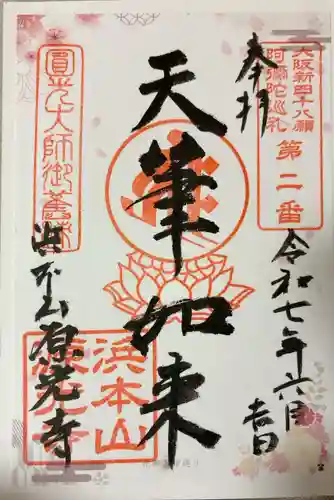 奉拝
大阪新四十八願
阿彌陀巡礼
第二番
令和七年六月吉日
天筆如来
圓光大師御舊跡
浜本山源光寺
浜本山
源光寺